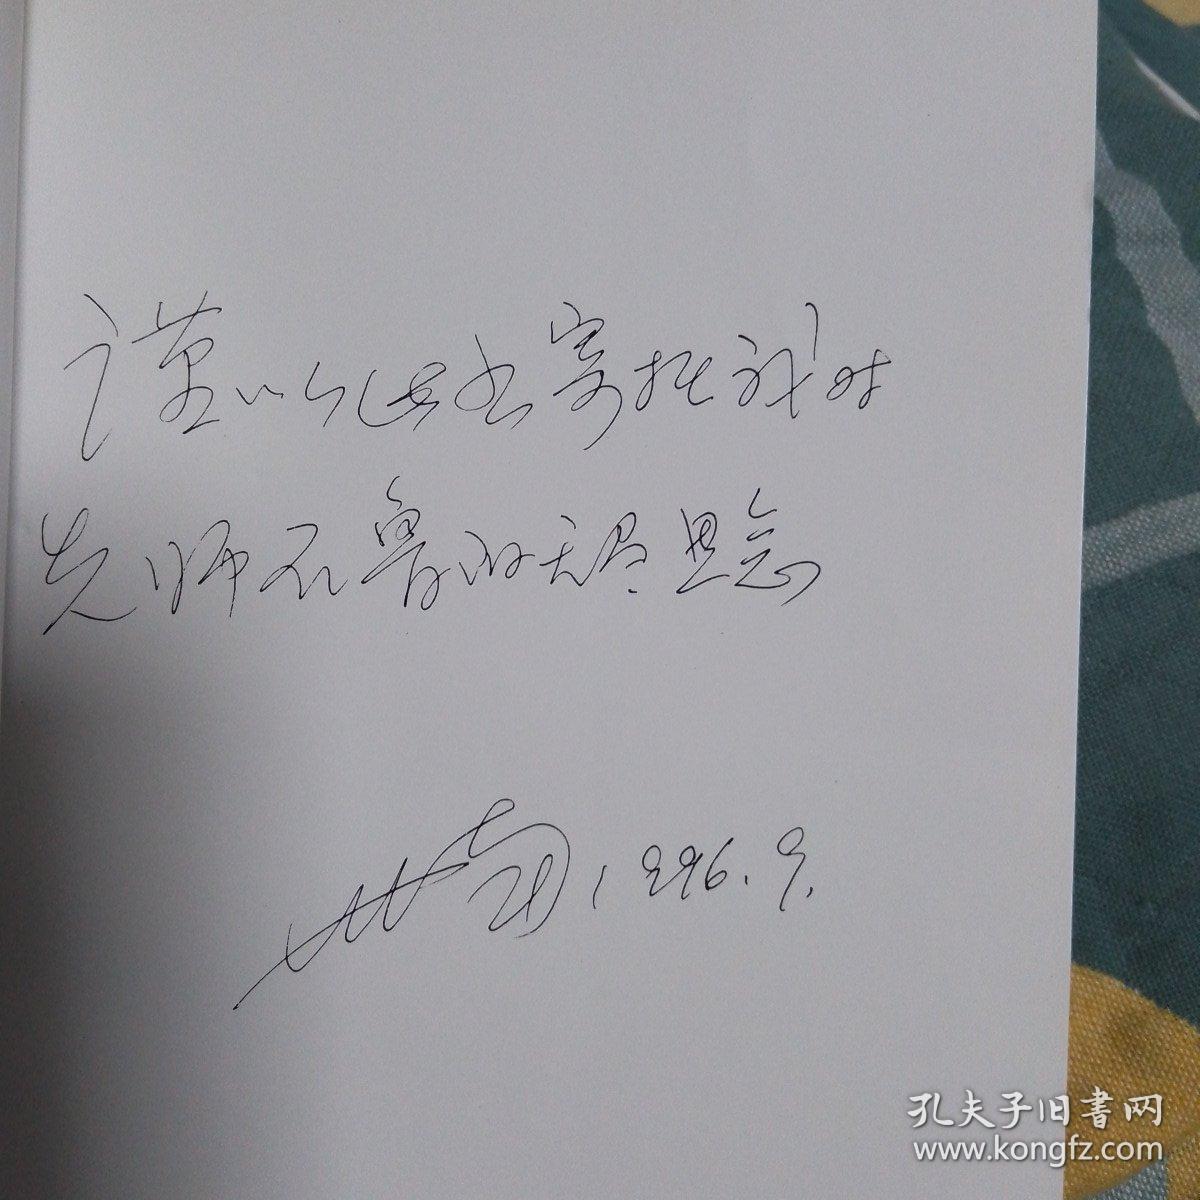 谨以此书寄托我对
先师石鲁的无尽思念
1996.9.
孔夫子旧書网
www.kongfz.com